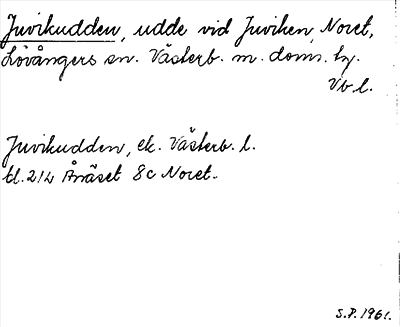 Juvikudden, udde vid Juviken, Noret,
Lövångers sn. Västerb. m. doms. by.
Vb l.
Juvikudden, ek. Västerb. l.
bl. 21L Ånäset 8c Noret.
S.P. 1961.